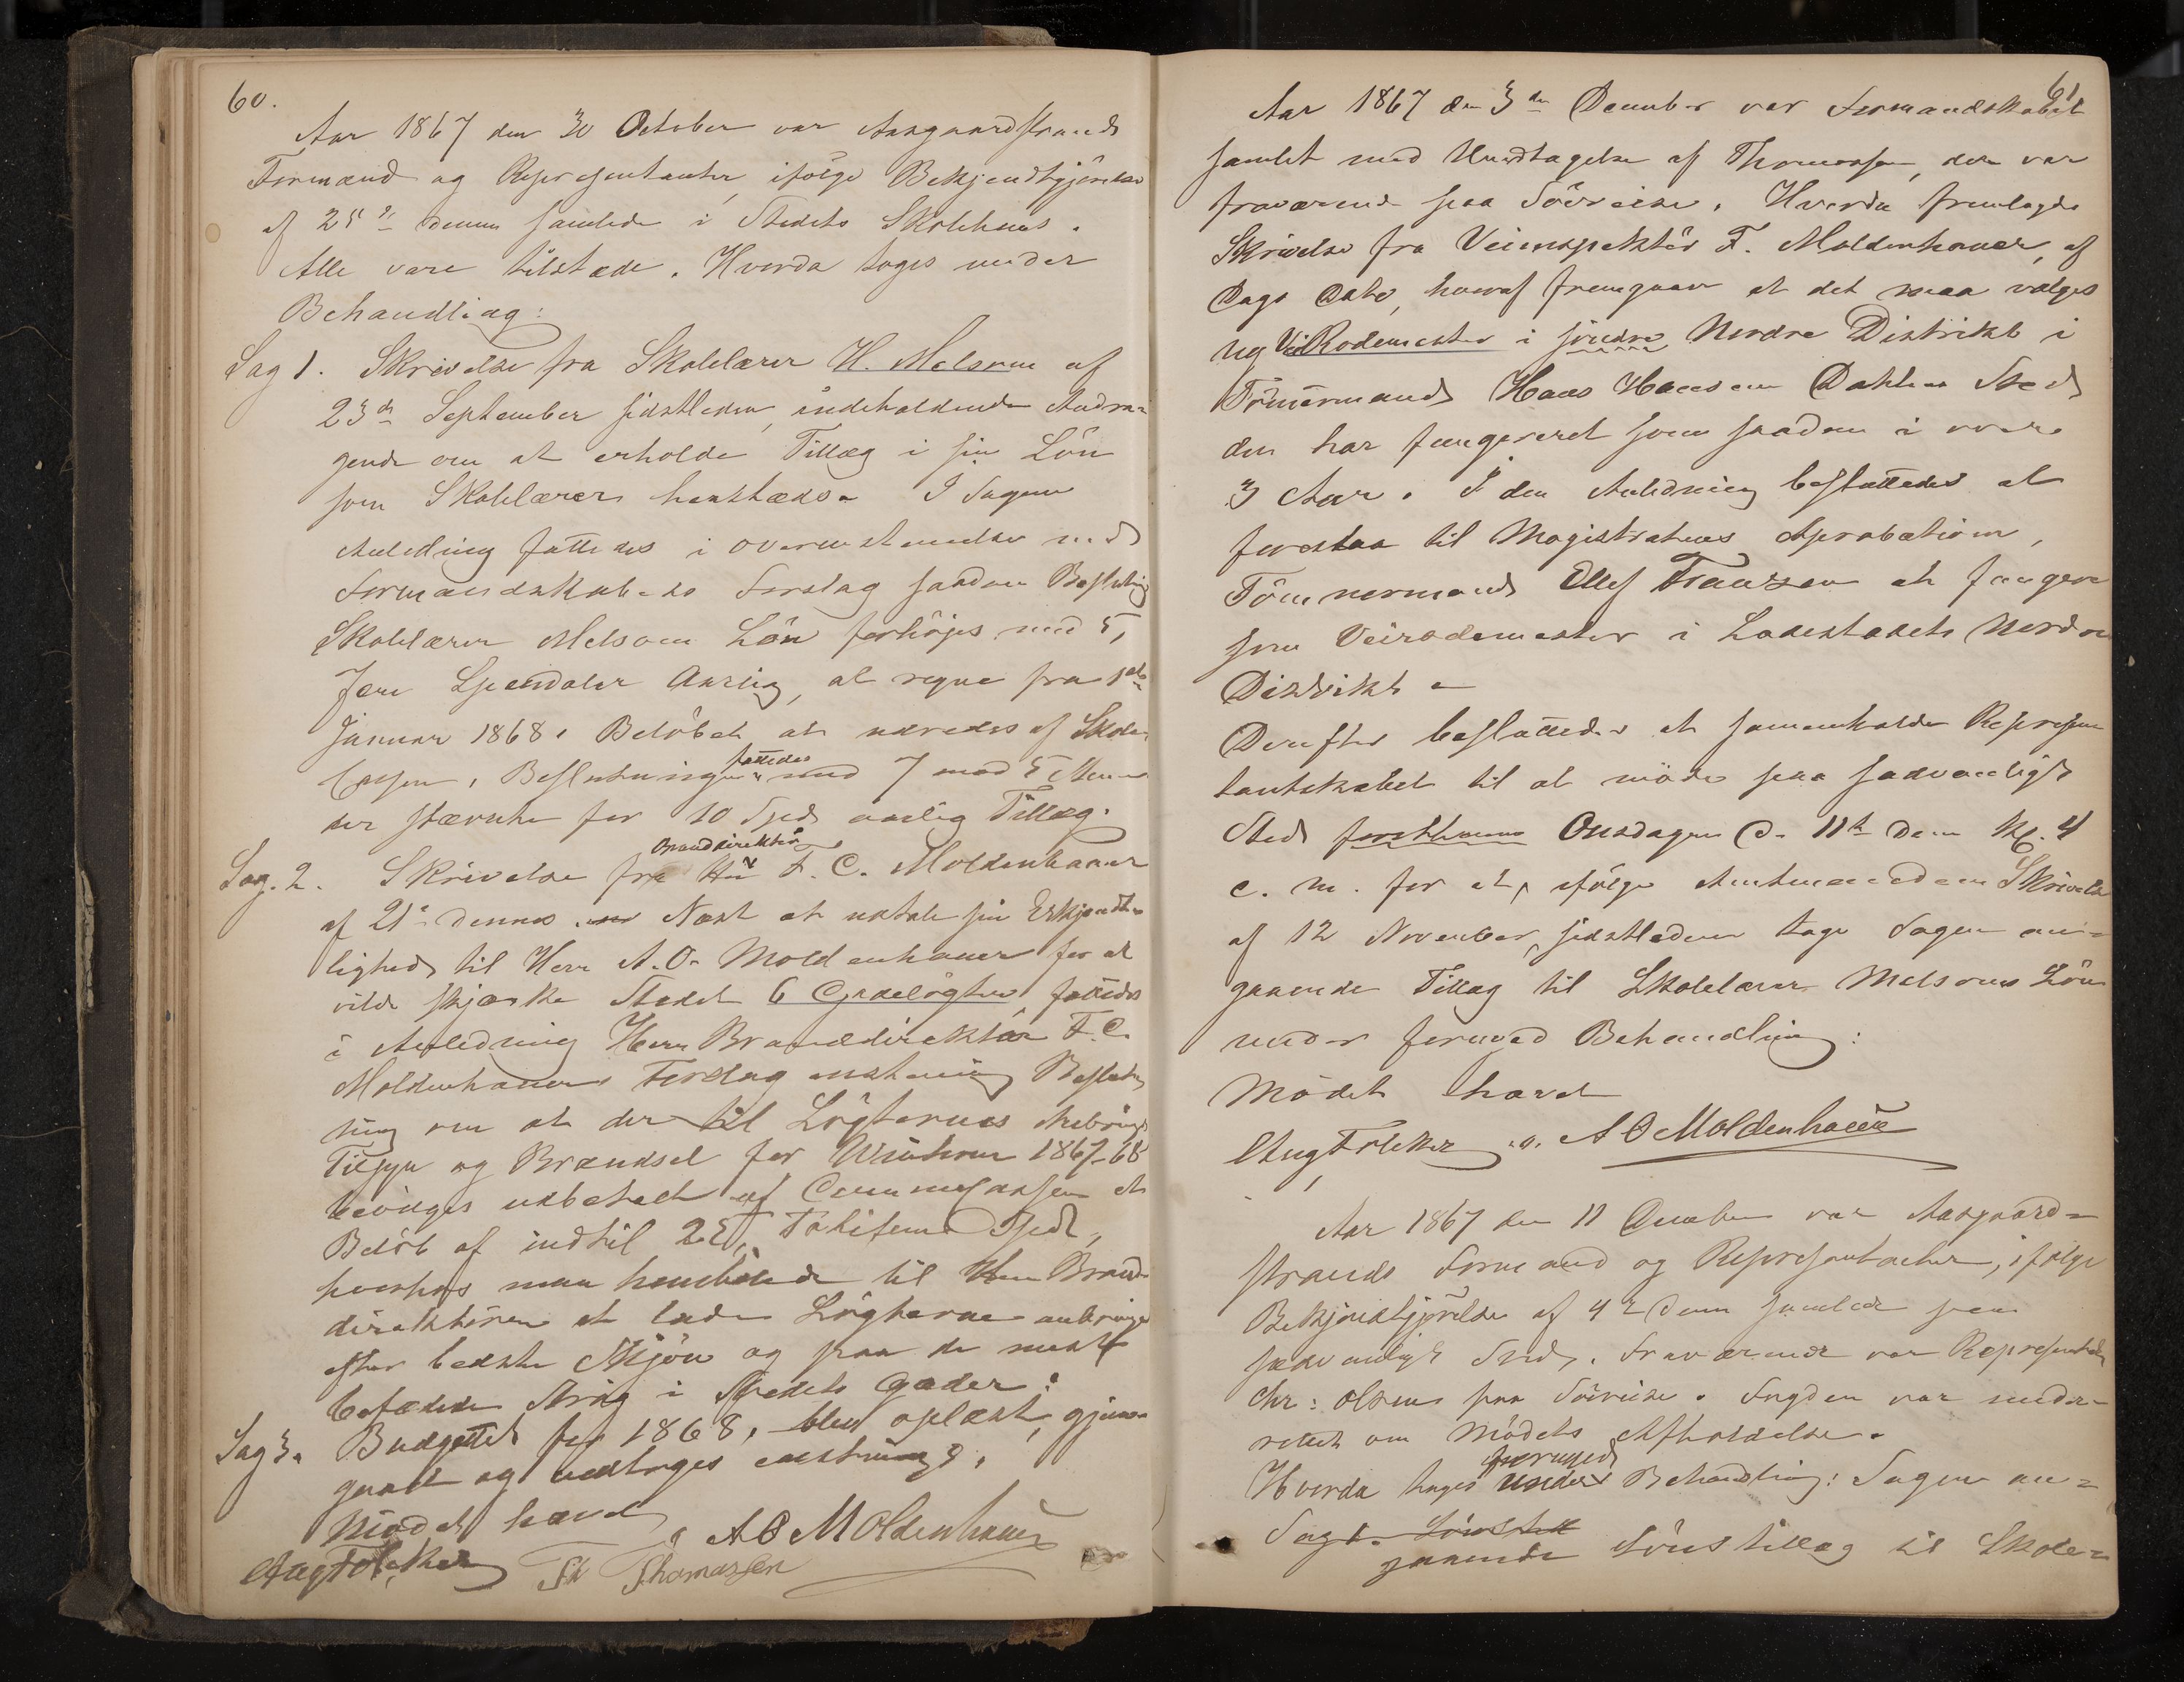 60.
Aar 1867 den 30 October var Aasgaardstrands
Formænd og Repræsentanter, ifölge Bekjendtgjörelse
af 25de dennes samlede i Stedets Skolehuus.
Alle vare tilstæde. Hvorda toges under
Behandling:
Sag 1. Skrivelse fra Skolelærer H. Melsom af
23de September sidstleden, indeholdende Andra-
gende om at erholde Tillæg i sin Lön
som Skolelærer. I Sagens
Anledning fattedes i Overensstemmelse med
Formandskabets Forslag saadan Beslutning
Skolelærer Melsoms Lön forhöjes med 5,
fem Speendaler Aarlig, at regne fra 1ste
Januar 1868. Belöbet at udredes af Skole-
Cassen. Beslutningen fattedes med 7 mod 5 Stemmer
der stemte for 10 Spd. aarlig Tillæg.
Sag. 2. Skrivelse fra Hr Branddirektör F. C. Moldenhauer
af 21de dennes. Næst at udtale sin Erkjendt-
lighed til Herr A. O. Moldenhauer for at
vilde skjænke Stedet 6 Gadelögter fattedes
i Anledning Herr Branddirektör F. C.
Moldenhauers Forslag enstemig Beslut-
ning om at der til Lögternes Anbringelse
Tilsyn og Brændsel for Vinteren 1867-68
bevilges udbetalt af Communecassen et
Belöb af indtil 25, Spd,
man henstillede til Herr Brand-
direktören at lade Lögterne anbringe
efter bedste Skjön og paa de mest
befærdede Strög i Stedets Gader.
Sag 3. Budgettet for 1868, blev oplæst, gjennem-
gaaet og vedtoges enstemigt.
Mödet hævet
AOMoldenhauer
Aug Fölcker Th Thomassen
61
Aar 1867 den 3die December var Formandskabet
samlet med Undtagelse af Thomassen, der var
fraværende paa Söereise. Hvorda fremlagdes
Skrivelse fra Veiinspektör F. Moldenhauer, af
Dags Dato, hvoraf fremgaar at det maa vælges
ny VeiRodemester i söndre Nordre Distrikt i
Tömmermand Hans Hansen Dahlen Sted
der har fungeret som saadan i over
3 Aar. I den Anledning besluttedes at
foreslaa til Magistratens Aprobation,
Tömmermand Ellef Franzen at fungere
som Veirodemester i Ladestedets Nordre
Distrikt.
Derefter besluttedes at sammenkalde Repræsen
tantskabet til at möde paa sædvanligt
Sted förstkommende Onsdagen d. 11te dennes Kl. 4
e. m. for at, ifölge Amtmandens Skrivelse
af 12 November sidstleden tage Sagen an-
gaaende Tillæg til Skolelærer Melsoms Lön
under fornyed Behandling:
Mödet hævet
Aug Fölcker AOMoldenhauer
Aar 1867 den 11 December var Aasgaard-
strands Formænd og Repræsentanter, ifölge
Bekjendtgjörelse af 4de dennes samlede paa
sædvanligt Sted. Fraværende var Repræsentant
Chr: Olsen paa Söereise. Fogden var under-
rettet om Mödets Afholdelse.
Hvorda toges under fornyed Behandling: Sagen an-
Sag 1. Lönstill
gaaende Lönstillæg til Skole-